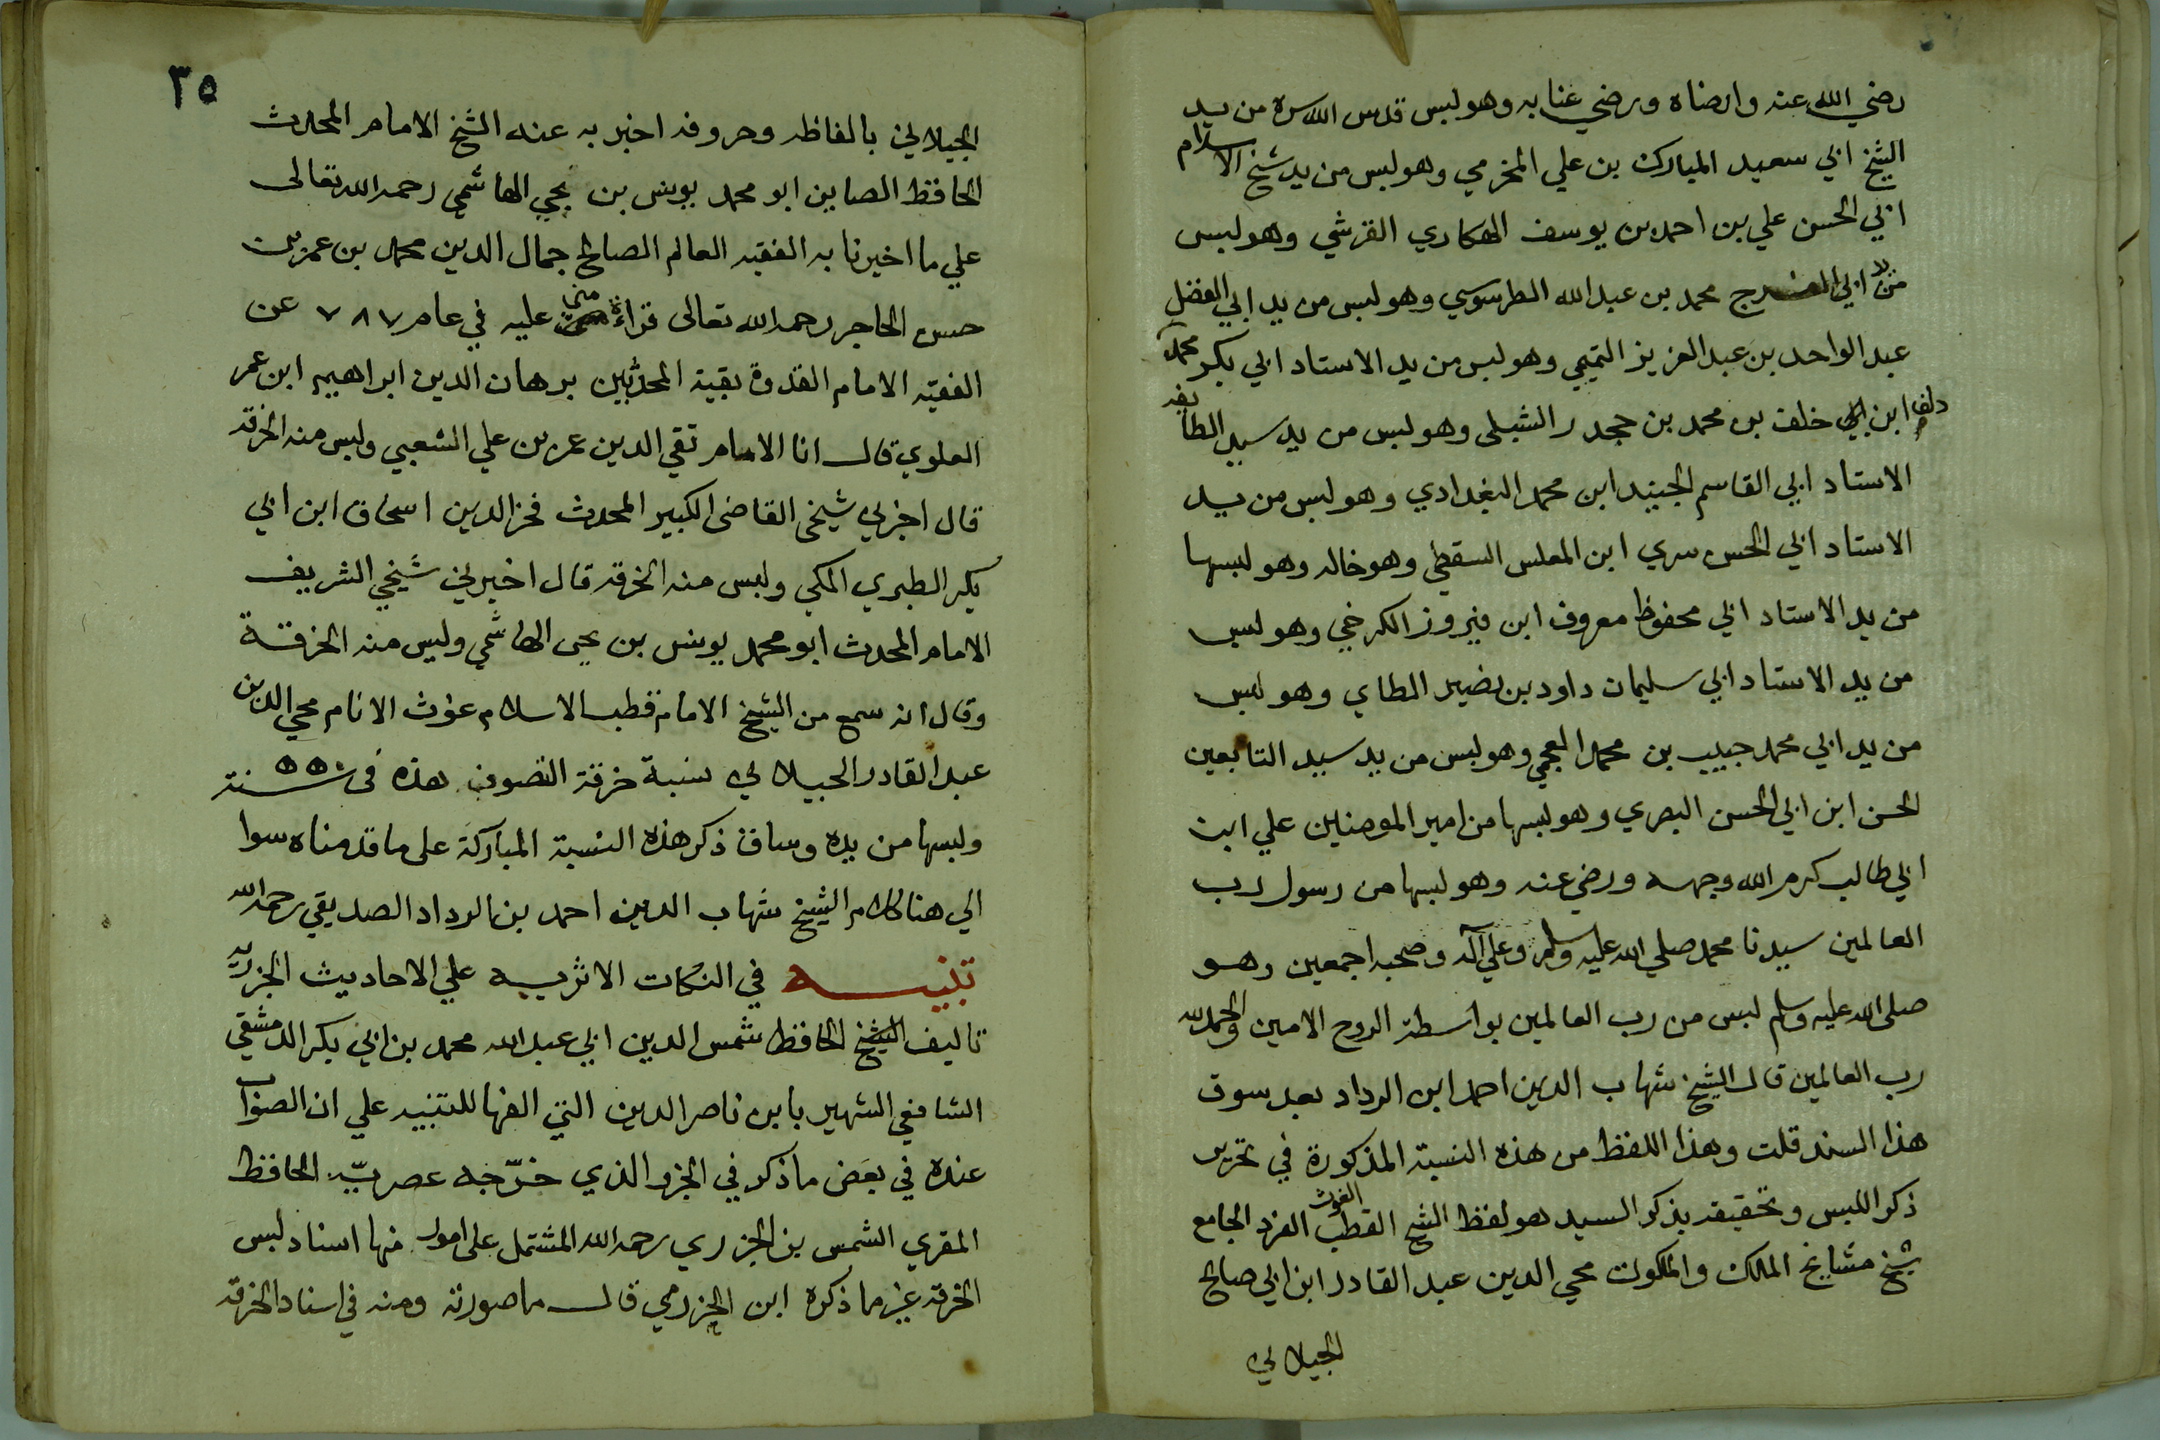 رضي الله عنه وارضاه ورضي عنا به وهو لبس قدس الله سره من يد
الشيخ ابي سعيد المبارك بن علي المخرمي وهو لبس من يد شيخ الاسلام
ابي الحسن علي بن احمد بن يوسف الهكاري القرشي وهو لبس
من ابي الفرج محمد بن عبد الله الطرسوسي وهو لبس من يد ابي الفضل
عبد الواحد بن عبد العزيز التميمي وهو لبس من يد الاستاد ابي بكر محمد
دلف ابن ابي خلف بن محمد بن جحدر الشبلى وهو لبس من يد سيد الطائفه
الاستاد ابي القاسم الجنيد ابن محمد البغدادي وهو لبس من يد
الاستاد ابي الحسن سري ابن المعلس السقطي وهو خاله وهو لبسها
من يد الاستاد ابي محفوظ معروف ابن فيروز الكرخي وهو لبس
من يد الاستاد ابي سليمان داود بن نضير الطاي وهو لبس
من يد ابي محمد حبيب بن محمد العجمي وهو لبس من يد سيد التابعين
الحسن ابن ابي الحسن البصري وهو لبسها من امير المومنين علي ابن
ابي طالب كرم الله وجهه ورضي عنه وهو لبسها من رسول رب
العالمين سيدنا محمد صلي الله عليه وسلم وعلي آله وصحبه اجمعين وهو
صلى الله عليه وسلم لبس من رب العالمين بواسطة الروح الامين والحمد لله
رب العالمين قال الشيخ شهاب الدين احمد ابن الرداد بعد سوق
هذا السند قلت وهذا اللفظ من هذه النسبة المذكورة في تحرير
ذكر اللبس وتحقيقه بذكر السيد هو لفظ الشيخ القطب الغوث الفرد الجامع
شيخ مشايخ الملك والملكوت محي الدين عبد القادر ابن ابي صالح
الجيلاني
٣٥
الجيلاني بالفاظه وحروفه اخبر به عنه الشيخ الامام المحدث
الحافظ الصاين ابو محمد يونس بن يحي الهاشمي رحمه الله تعالى
علي ما اخبرنا به الفقيه العالم الصالح جمال الدين محمد بن عمر بن
حسن الحاجر رحمه الله تعالى قراءة مني عليه في عام ٧٨٧ عن
الفقيه الامام القدوة بقية المحدثين برهان الدين ابراهيم ابن عمر
العلوي قال انا الامام تقي الدين عمر بن علي الشعبي ولبس منه الخرقه
قال اخبرني شيخي القاضى الكبير المحدث فخر الدين اسحاق ابن ابي
بكر الطبري المكي ولبس منه الخرقه قال اخبرني شيخي الشريف
الامام المحدث ابو محمد يونس بن يحى الهاشمي ولبس منه الخرقة
وقال انه سمع من الشيخ الامام قطب الاسلام عوث الانام محي الدين
عبد القادر الجيلاني نسبة خرقة التصوف هذه فى سنة ٥٥٠
ولبسها من يده وساق ذكر هذه النسبة المباركة على ما قدمناه سوا
الي هنا كلام الشيخ شهاب الدين احمد بن الرداد الصديقي رحمه الله
تنبيه في النكات الاثريه علي الاحاديث الجزريه
تاليف الشيخ الحافظ شمس الدين ابي عبد الله محمد بن ابي بكر الدمشقي
الشافعي الشهير بابن ناصر الدين التي الفها للتنبيه علي ان الصواب
عنده في بعض ما ذكر في الجزو الذي خرّجه عصريّه الحافظ
المقري الشمس بن الجزري رحمه الله المشتمل على امور منها اسناد لبس
الخرقه غير ما ذكره ابن الجزري قال ما صورته ومنه في اسناد الخرقه